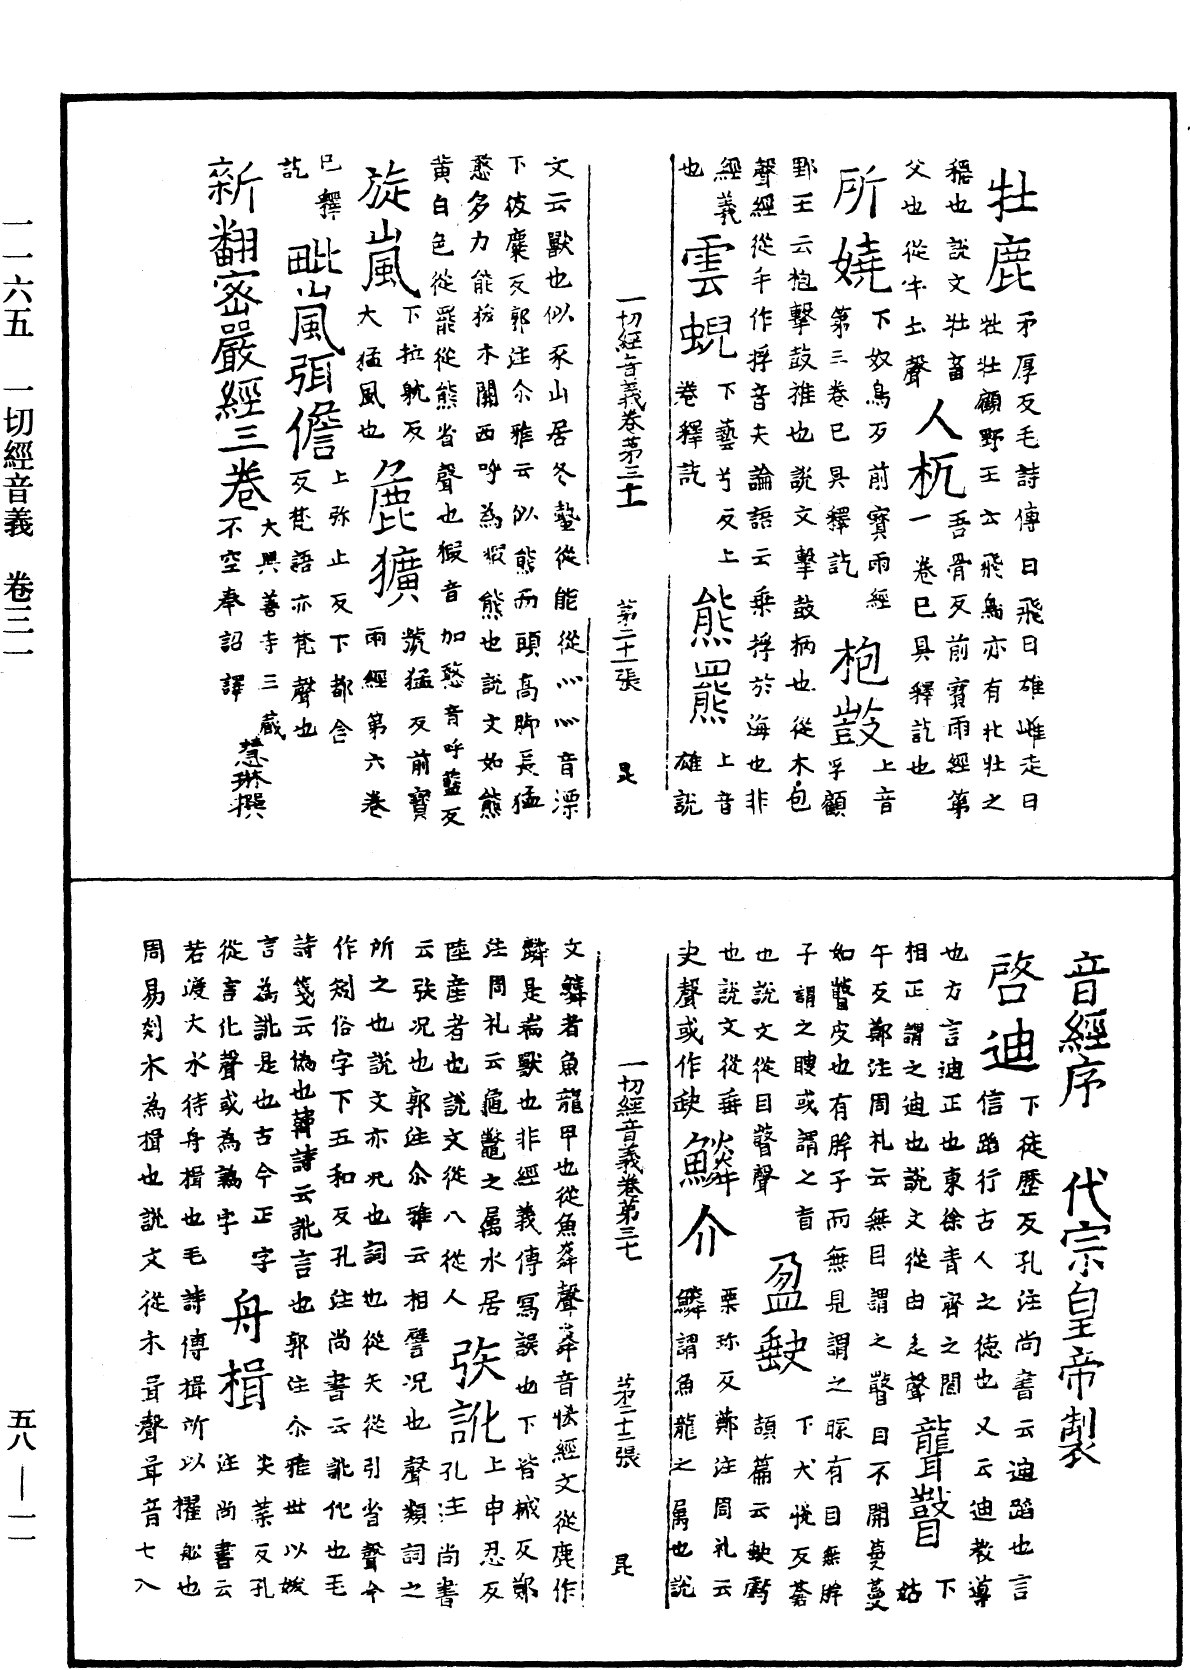 一一六五 一切經音義 卷三一
五八—一一
牡鹿 矛厚反毛詩傳曰飛曰雄雌走曰
牝牡顧野王云飛鳥亦有牝牡之
穪也說文牡畜
父也從牛土聲 人杌 吾骨反前寶雨經第
一卷已具釋訖也
所嬈 下奴鳥反前寶雨經
第三卷已具釋訖 枹鼓 上音
孚顧
野王云枹擊鼓椎也說文擊鼓柄也從木包
聲經從手作捊音夫論語云乗捊於海也非
經義
也 雲蜺 下藝兮反上
卷釋訖 熊羆 上音
雄說
一切經音義卷第三十一 第二十一張 昆
文云獸也似豕山居冬蟄從能從灬灬音漂
下彼麋反郭注尒雅云似熊而頭髙脚長猛
憨多力能拔木關西呼為猳熊也說文如熊
黄白色從罷從熊省聲也猳音加憨音呼藍反
旋嵐 下拉躭反
大猛風也 麁獷 虢猛反前寶
雨經第六卷
已釋
訖 毗嵐弭儋 上弥止反下都含
反梵語亦梵聲也
新翻密嚴經三卷 大興善寺三藏
不空奉詔譯 慧琳撰
音經序 代宗皇帝製
啓迪 下徒歷反孔注尚書云迪蹈也言
信蹈行古人之德也又云迪教導
也方言迪正也東徐青齊之閒
相正謂之迪也說文從由辵聲 聾瞽 下
姑
午反鄭注周礼云無目謂之瞽目不開蔓蔓
如瞽皮也有眸子而無見謂之矇有目無眸
子謂之瞍或謂之盲
也說文從目鼓聲 盈缺 下犬悅反蒼
頡篇云缺虧
也說文從垂
史聲或作缺 鱗介 栗珎反鄭注周礼云
鱗謂魚龍之属也說
一切經音義卷第三十 第二十二張 昆
文鱗者魚龍甲也從魚粦聲粦音㷠經文從鹿作
麟是瑞獸也非經義傳冩誤也下皆械反鄭
注周礼云龜鼈之属水居
陸産者也說文從八從人 矧訛 上申忍反
孔注尚書
云矧况也郭注尒雅云相譬况也聲類詞之
所之也說文亦况也詞也從矢從引省聲今
作矧俗字下五和反孔注尚書云訛化也毛
詩箋云偽也韓詩云訛言也郭注尒雅世以妖
言為訛是也古今正字
從言化聲或為譌字 舟楫 尖葉反孔
注尚書云
若渡大水待舟楫也毛詩傳楫所以擢舩也
周易剡木為楫也說文從木咠聲咠音七入